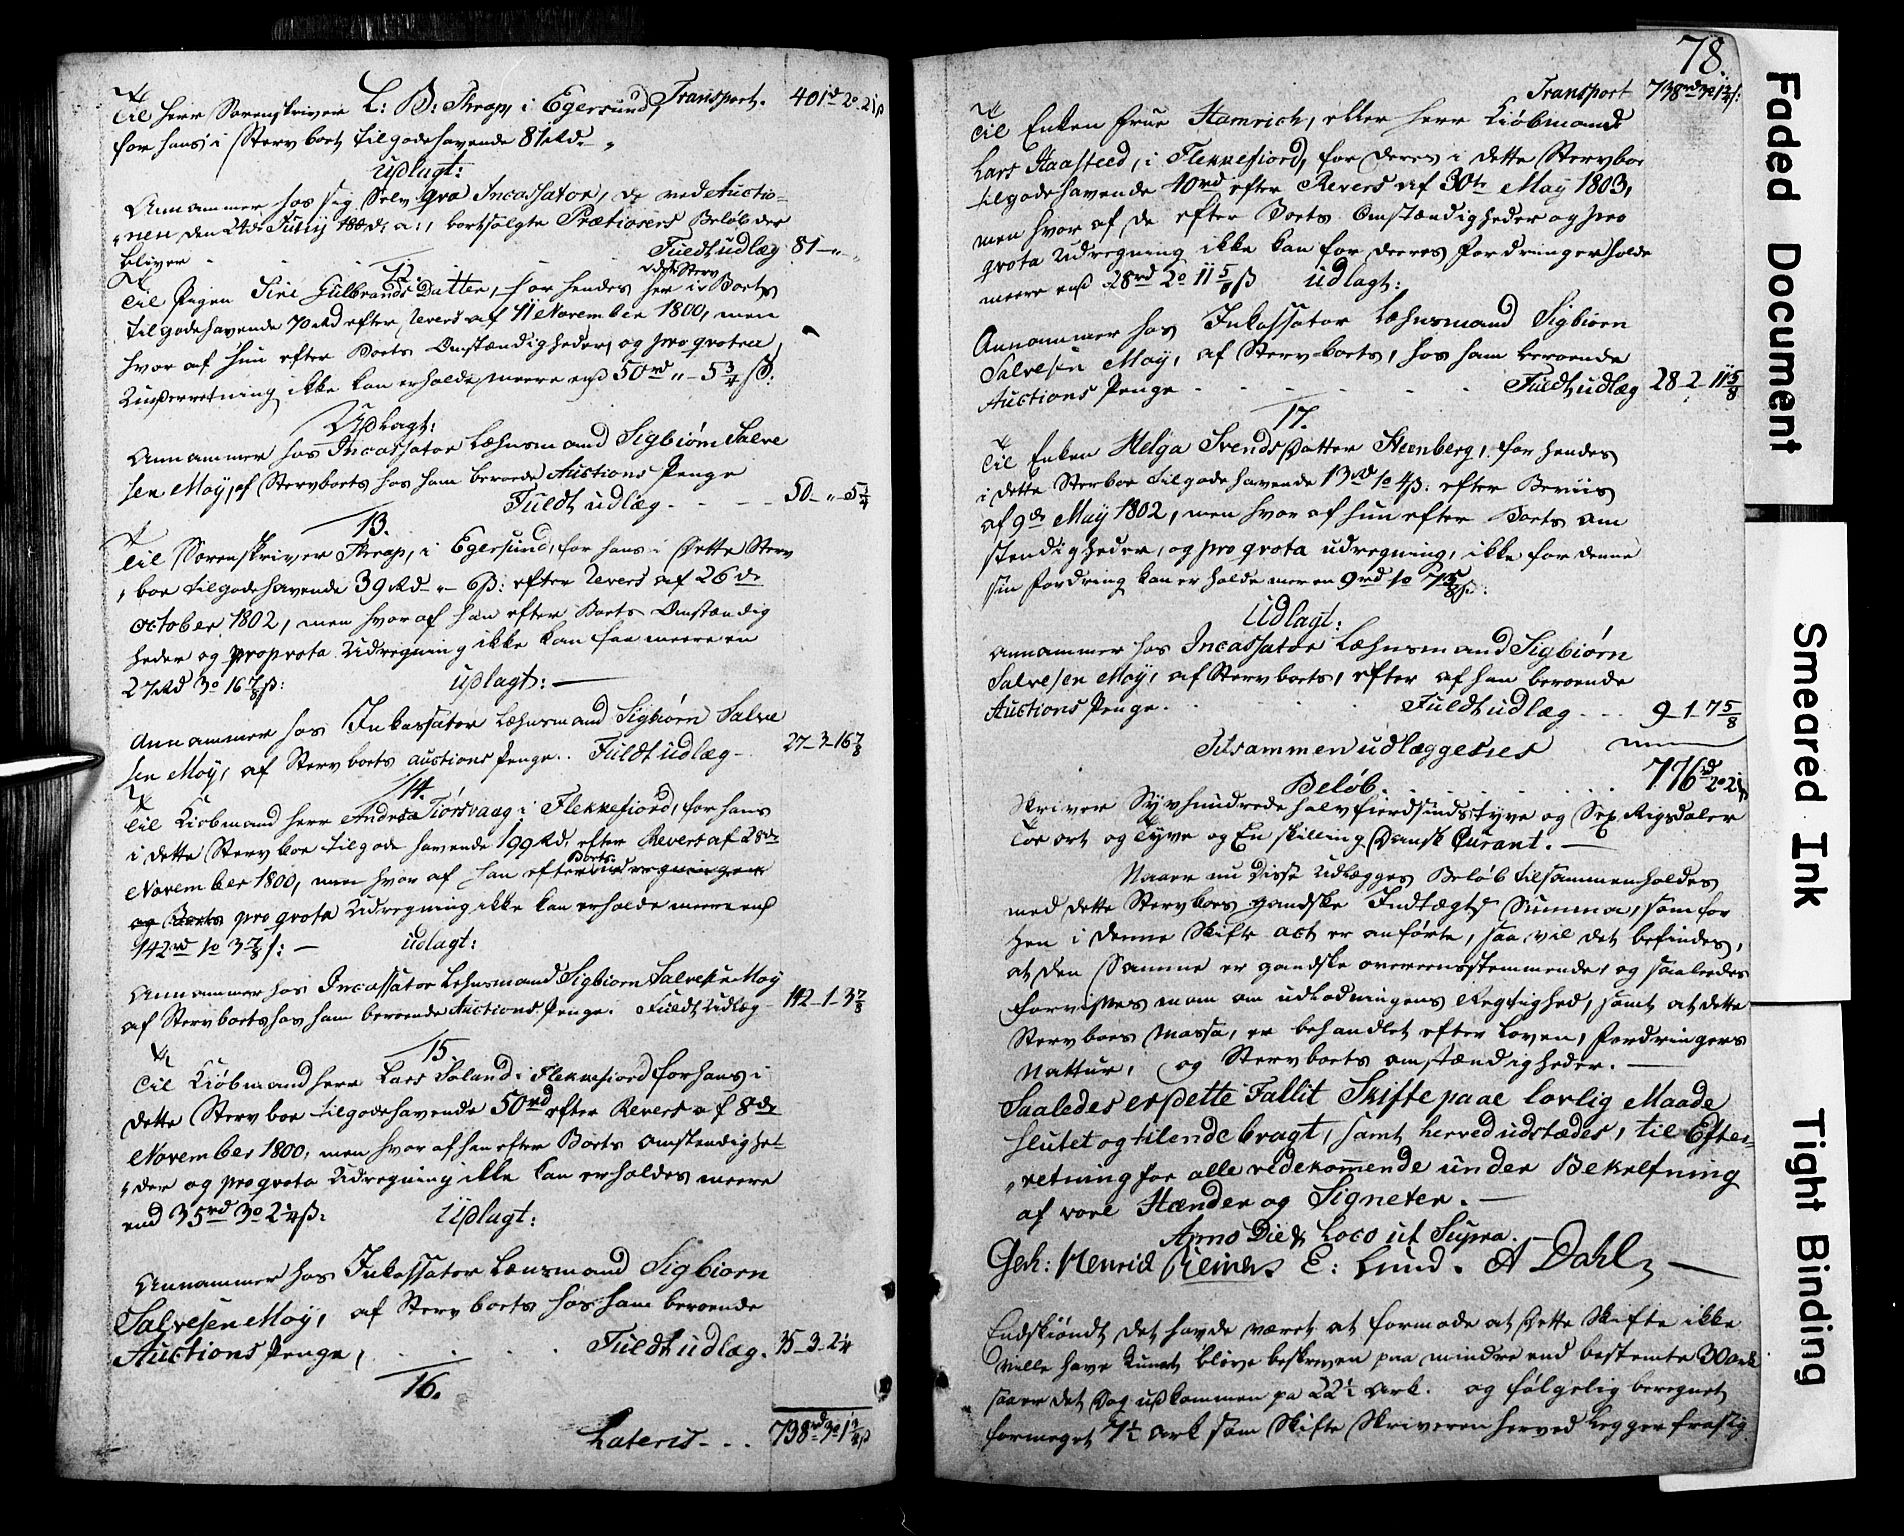 Transport. 401rd 2o 21ß
Til Herr Sorenskriver L: B: Thrap, i Egersund,
for hans i Stervboet tilgodehavende 81Rd. „
Udlagt:
Annammer hos sig Selv qva Incassator, de ved Auctio-
„nen den a: bortsolgte Prætiosers Beløb der
bliver Fuldt udlæg 81 „ „
12.
Til Pigen Siri Gulbrands Datter, for hendes her i dette Sterv Boets
tilgodehavende 70Rd efter Revers af 11 November 1800, men
hvor af hun efter Boets Omstændigheder, og pro qvota
ikke kan erholde meere end 50rd „ 5 3/4 ß:
Udlagt:
Annammer hos Incassator Læhnsmand Sigbiørn Salve
sen Moÿ, af Stervboets hos ham beroende Auctions Penge
Fuldt udlæg - - - - 50 „ 5 3/4
13.
Til Sorenskriver Thrap, i Egersund, for hans i Dette Sterv
„boe tilgodehavende 39Rd „ 6ß: efter Revers af 26de
October 1802, men hvor af han efter Boets Omstændig
heder og pro qvota Udregning ikke kan faae meere en
27Rd 3o 16 7/8ß: Udlagt:
Annammer hos Inkassator Læhnsmand Sigbiørn Salve
sen Moÿ, af Stervboets auctions Penge.. Fuldt udlæg - 27-3-16 7/8
14.
Til Kiøbmand Herr Andrea Tiorsvaag i Flekkefiord, for hans
i dette Stervboe tilgode havende 199Rd. efter Revers af 28de
November 1800, men hvor af han efter Boets udregningen
og Boets pro qvota Udregning ikke kan erholde meere end
142rd 1o 3 7/8ß: - udlagt:
Annammer hos Incassator Lehnsmand Sigbiorn Salvesen Moÿ
af Stervboets hos ham beroende Auctions Penge. Fuldt Udlæg - 142-1-3 7/8
15.
Til Kiøbmand herr Lars Soland i Flekkefiord for hans i
dette Stervboe tilgodehavende 50rd efter Revers af 8de
November 1800, men hvor af han efter Boets Omstendighe-
„der og pro qvota Udregning ikke kan erholdes meere
end 35rd 3o 2 1/4ß: Udlagt:
Annammer hos Inkassator Lænsmand Sigbiorn
Salvesen Moÿ, af Stervboets hos ham beroende
Auctions Penge, Fuldt udlæg. 35-3-2 1/4
16.
Lateris - . . 738rd 3o 1 3/4ß
78.
Transport 738rd 3o 1 3/4ß:
Til Enken Frue Hamrich, eller Herr Kiøbmand
Lars Haasteed, i Flekkefiord, for deres i dette Stervboe
tilgodehavende 40rd efter Revers af 30te May 1803,
men hvor af de efter Boets Omstændigheder og pro
qvota Udregning ikke kan for deres Fordringer holde
meere end 28rd 2o 11 5/8ß Udlagt:
Annammer hos Inkassator Læhnsmand Sigbiorn
Salvesen Moÿ, af Stervboets, hos ham beroende
Auctions Penge - - - - Fuldt udlæg 28-2-11 5/8
17.
Til Enken Helga Svends Datter Steenberg, for hendes
i dette Sterboe tilgodehavende 13rd 1o 4ß: efter Beviis
af 9de May 1802, men hvor af hun efter Boets Om
stendigheder, og pro qvota udregning, ikke for denne
sin Fordring kan erholde mer en 9rd 1o 7 5/8ß:
Udlagt:
Annammer hos Incassator Læhnsmand Sigbiørn
Salvesen Moÿ, af Stervboets, efter af han beroende
Auctions Penge. Fuldt udlæg - - - 9-1-7 5/8
Tilsammen udlæggenes
Beløb. 776rd 2o 21ß
Skriver Syvhundrede halvfierdsindstyve og Sex Rigsdaler
Toe ort og Tyve og En skilling Dansk Courant. -
Naaer nu Disse Udlægges Beløb tilsammenholdes
med dette Stervboes gandske Indtægts Summa, som for
hen i denne Skifte act er anførte, saa vil det befindes,
at den Samme er gandske overeensstemmende, og saaledes
forvisses man om udlodningens Rigtighed, samt at dette
Stervboes Massa, er behandlet efter Loven, Fordringers
Nattur, og Stervboets omstændigheder. -
Saaledes er Dette Fallit Skifte paae lovlig Maade
Slutet og tilendebragt, samt herved udstædes, til Efter-
„retning for alle vedekommende under Bekreftning
af vore Hænder og Signeter. -
Anno Die & Loco ut Supra.
Geh: Henrich Reiners E: Lund. A Dahl
Endskiøndt det havde været at formode at Dette Skifte ikke
ville have kunnet blive beskreven paa mindre end bestemte 30 ark
saa er det Dog udkommen pa 22 1/2 Ark. og følgelig beregnet
formeget 7 1/2 Ark, som Skifte Skriveren herved Legger fra sig
Faded Document
Smeared Ink
Tight Binding